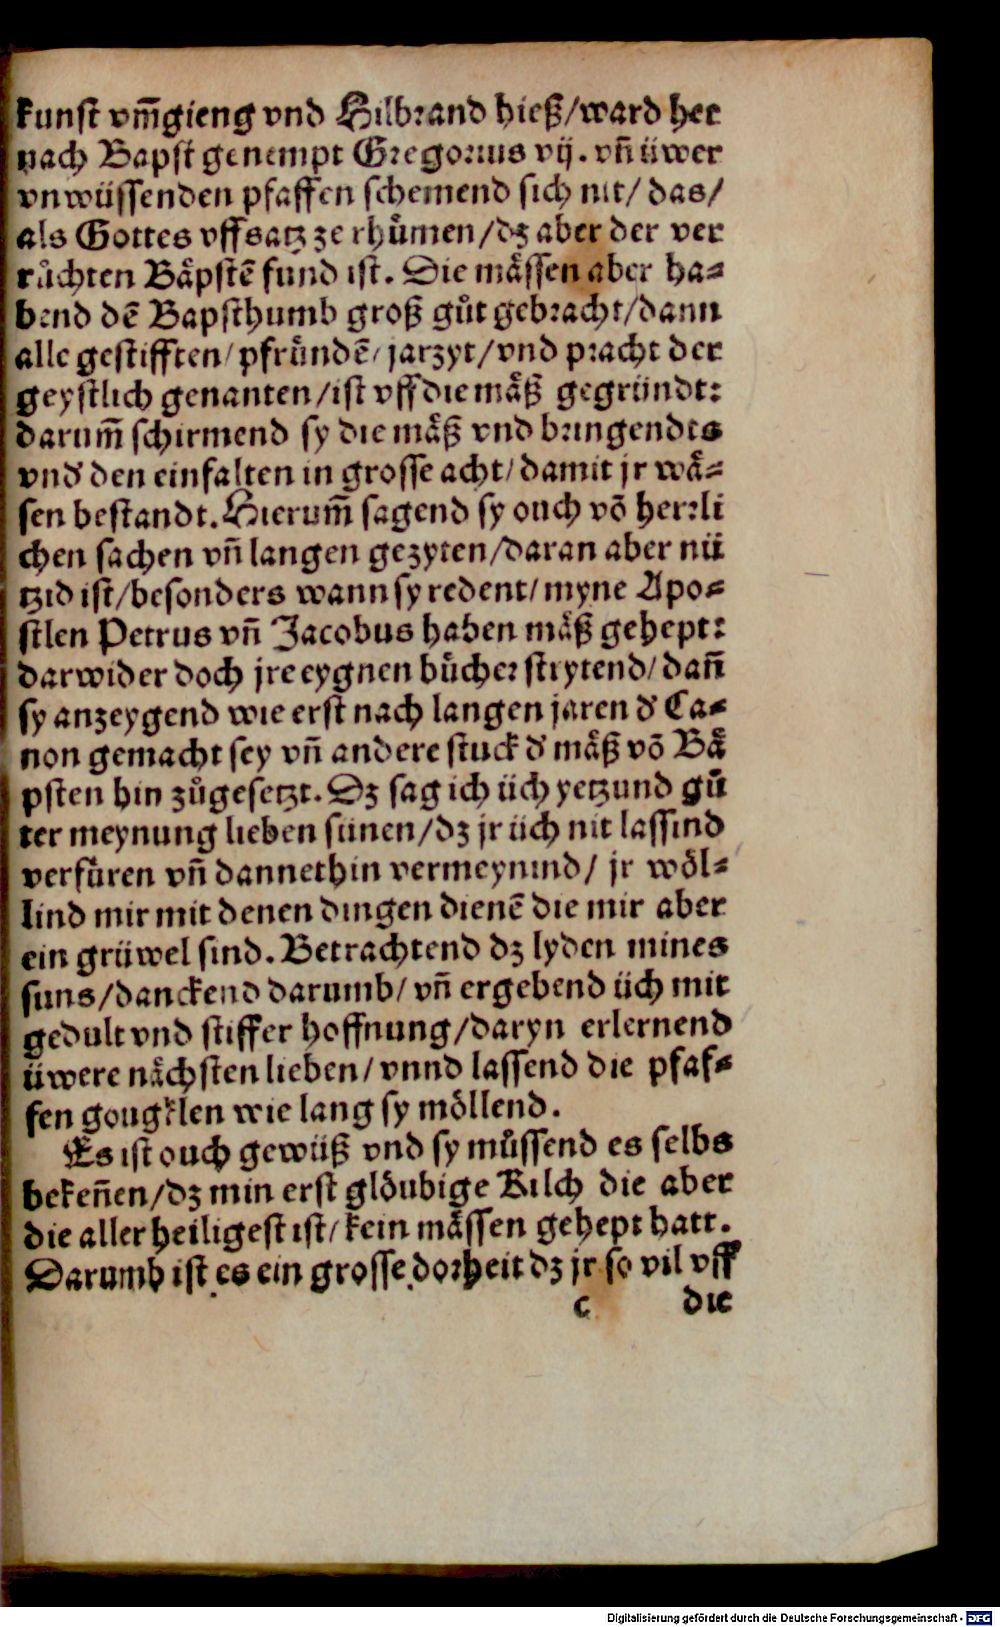 kunst vm̃gieng vnd Hilbrand hieß/ward her
nach Bapst genempt Gregorius vij. vñ üwer
vnwüssenden pfaffen schemend sich nit/ das/
als Gottes vffsatz ze rhůmen/dz aber der ver
růchten Bäpstẽ fund ist. Die mässen aber ha⸗
bend dẽ Bapsthumb groß gůt gebracht/dann
alle gestifften/ pfründẽ/ jarzyt/vnd pracht der
geystlich genanten/ist vff die mäß gegründt:
darum̃ schirmend sy die mäß vnd bringendts
vnd den einfalten in grosse acht/ damit jr wä⸗
sen bestandt. Hierum̃ sagend sy ouch võ herrli
chen sachen vñ langen gezyten/daran aber nü
tzid ist/besonders wann sy redent/ myne Apo⸗
stlen Petrus vñ Jacobus haben mäß gehept:
darwider doch jre eygnen bücher strytend/ dañ
sy anzeygend wie erst nach langen jaren d' Ca⸗
non gemacht sey vñ andere stuck d' mäß võ Bä
psten hin zůgesetzt. Dz sag ich üch yetzund gů
ter meynung lieben sünen/dz jr üch nit lassind
verfüren vñ dannethin vermeynind/ jr wöl⸗
lind mir mit denen dingen dienẽ die mir aber
ein grüwel sind. Betrachtend dz lyden mines
suns/danckend darumb/ vñ ergebend üch mit
gedult vnd stiffer hoffnung/daryn erlernend
üwere nächsten lieben/ vnnd lassend die pfaf⸗
fen gougklen wie lang sy möllend.
Es ist ouch gewüß vnd sy müssend es selbs
bekeñen/dz min erst glöubige Kilch die aber
die aller heiligest ist/ kein mässen gehept hatt.
Darumb ist es ein grosse dorheit dz jr so vil vff
c die
Digitalisierung gefördert durch die Deutsche Forschungsgemeinschaft - DFG